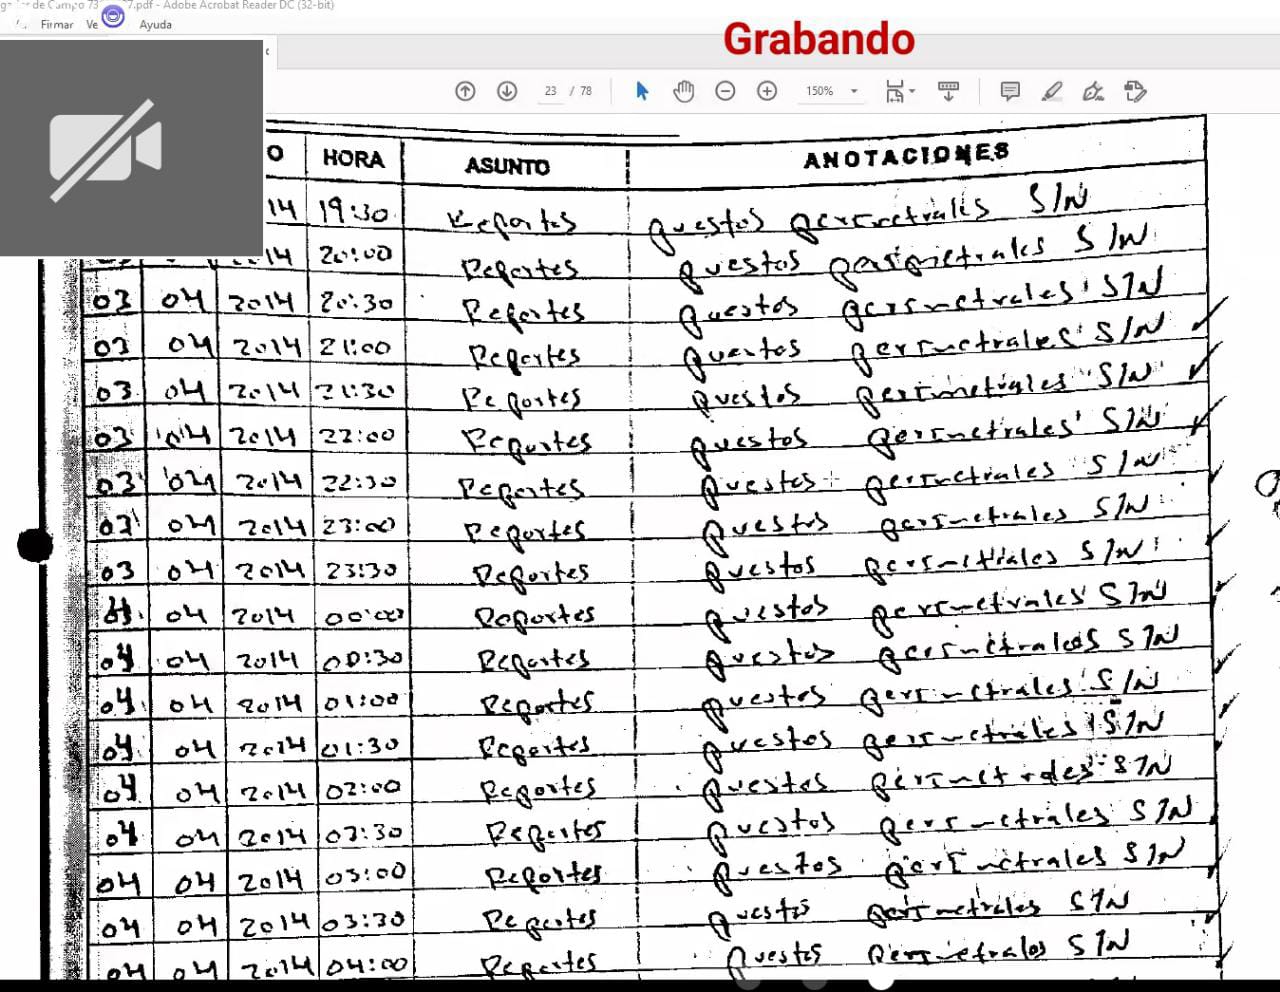 de Campo 73 7.pdf - Adobe Acrobat Reader DC (32-bit)
Firmar Ve Ayuda
Grabando
23 / 78 150%
O HORA ASUNTO ANOTACIONES
14 19:30 Reportes puestos perimetrales S/N
14 20:00 Reportes puestos perimetrales S/N
03 04 2014 20:30 Reportes puestos perimetrales S/N
03 04 2014 21:00 Reportes puestos perimetrales S/N
03 04 2014 21:30 Reportes puestos perimetrales S/N
03 04 2014 22:00 Reportes puestos perimetrales S/N
03 04 2014 22:30 Reportes puestos perimetrales S/N
03 04 2014 23:00 Reportes puestos perimetrales S/N
03 04 2014 23:30 Reportes puestos perimetrales S/N
04 2014 00:00 Reportes puestos perimetrales S/N
04 04 2014 00:30 Reportes puestos perimetrales S/N
04 04 2014 01:00 Reportes puestos perimetrales S/N
04 04 2014 01:30 Reportes puestos perimetrales S/N
04 04 2014 02:00 Reportes puestos perimetrales S/N
04 04 2014 02:30 Reportes puestos perimetrales S/N
04 04 2014 03:00 Reportes puestos perimetrales S/N
04 04 2014 03:30 Reportes puestos perimetrales S/N
04 04 2014 04:00 Reportes puestos perimetrales S/N